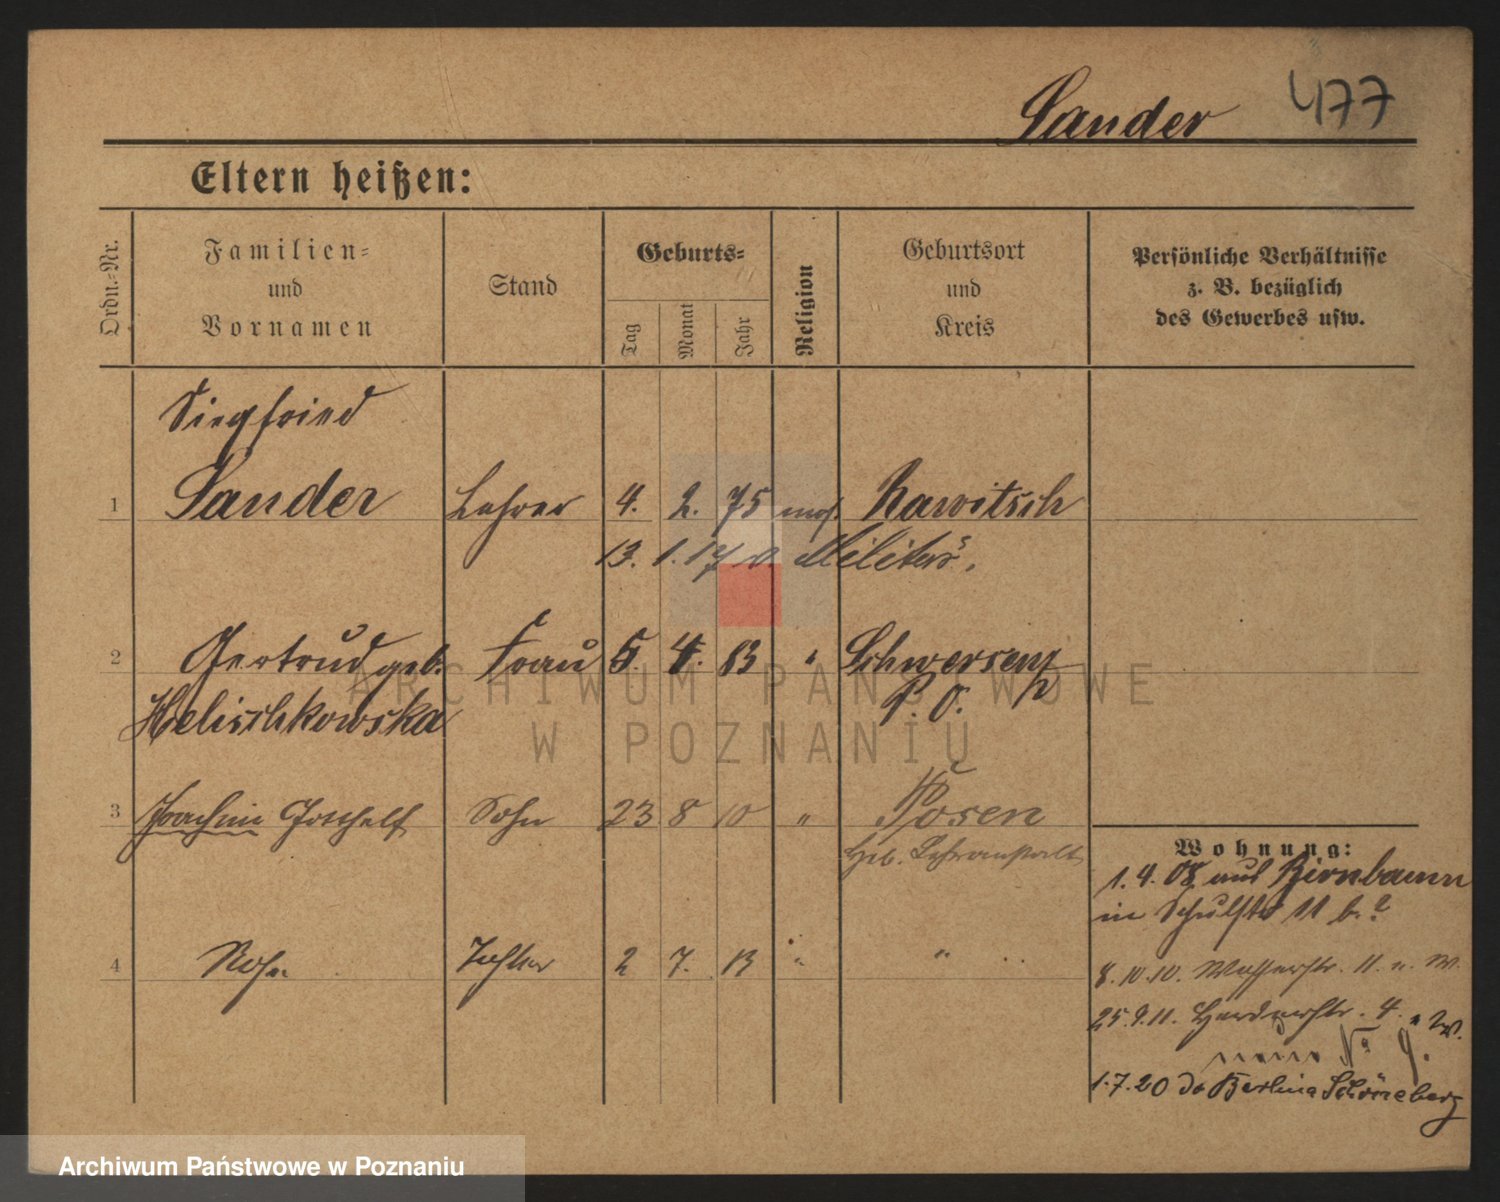 Sander 477
Eltern heißen:
Ordn.-Nr.
Familien-
und
Vornamen
Stand
Geburts-
Tag
Monat
Jahr
Religion
Geburtsort
und
Kreis
Persönliche Verhältnisse
z. B. bezüglich
des Gewerbes usw.
Siegfried
1 Sander Lehrer 4. 2. 75 mos. Rawitsch
13. 1. 17 Militär.
2 Gertrud geb. Frau 5. 4. 83 " Schwersenz
Helischkowska P. O.
3 Joachim Gotthelf Sohn 23 8 10 " Posen
Wohnung:
1. 4. 08 aus Birnbaum
in Schulstr 11 b.
4 Tochter 2 7. 13 " "
8. 10. 10. Wasserstr. 11. n. W.
25. 9. 11. 4. n W.
neue No 9.
1. 7. 20 Berlin Schöneberg
ARCHIWUM PAŃSTWOWE
W POZNANIU
Archiwum Państwowe w Poznaniu